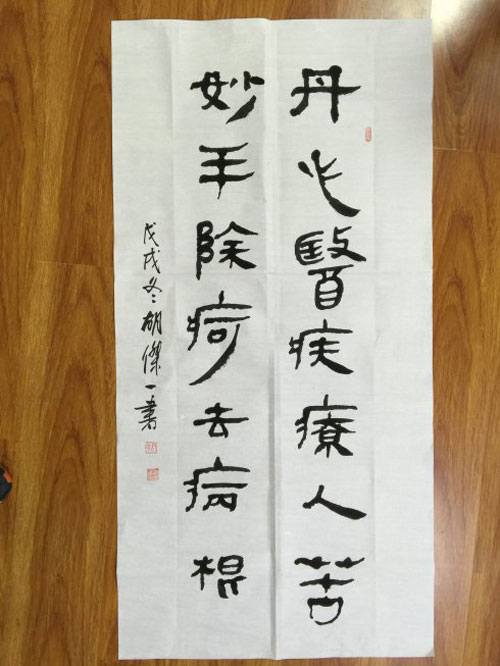 丹心醫疾療人苦
妙手除疴去病棍
戊戌冬胡傑一書